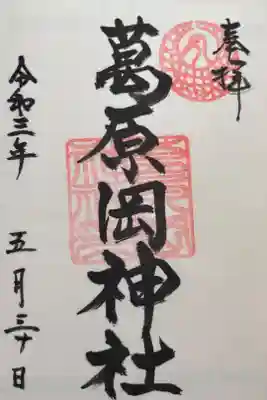 奉拝
葛原岡神社
令和三年 五月三十日